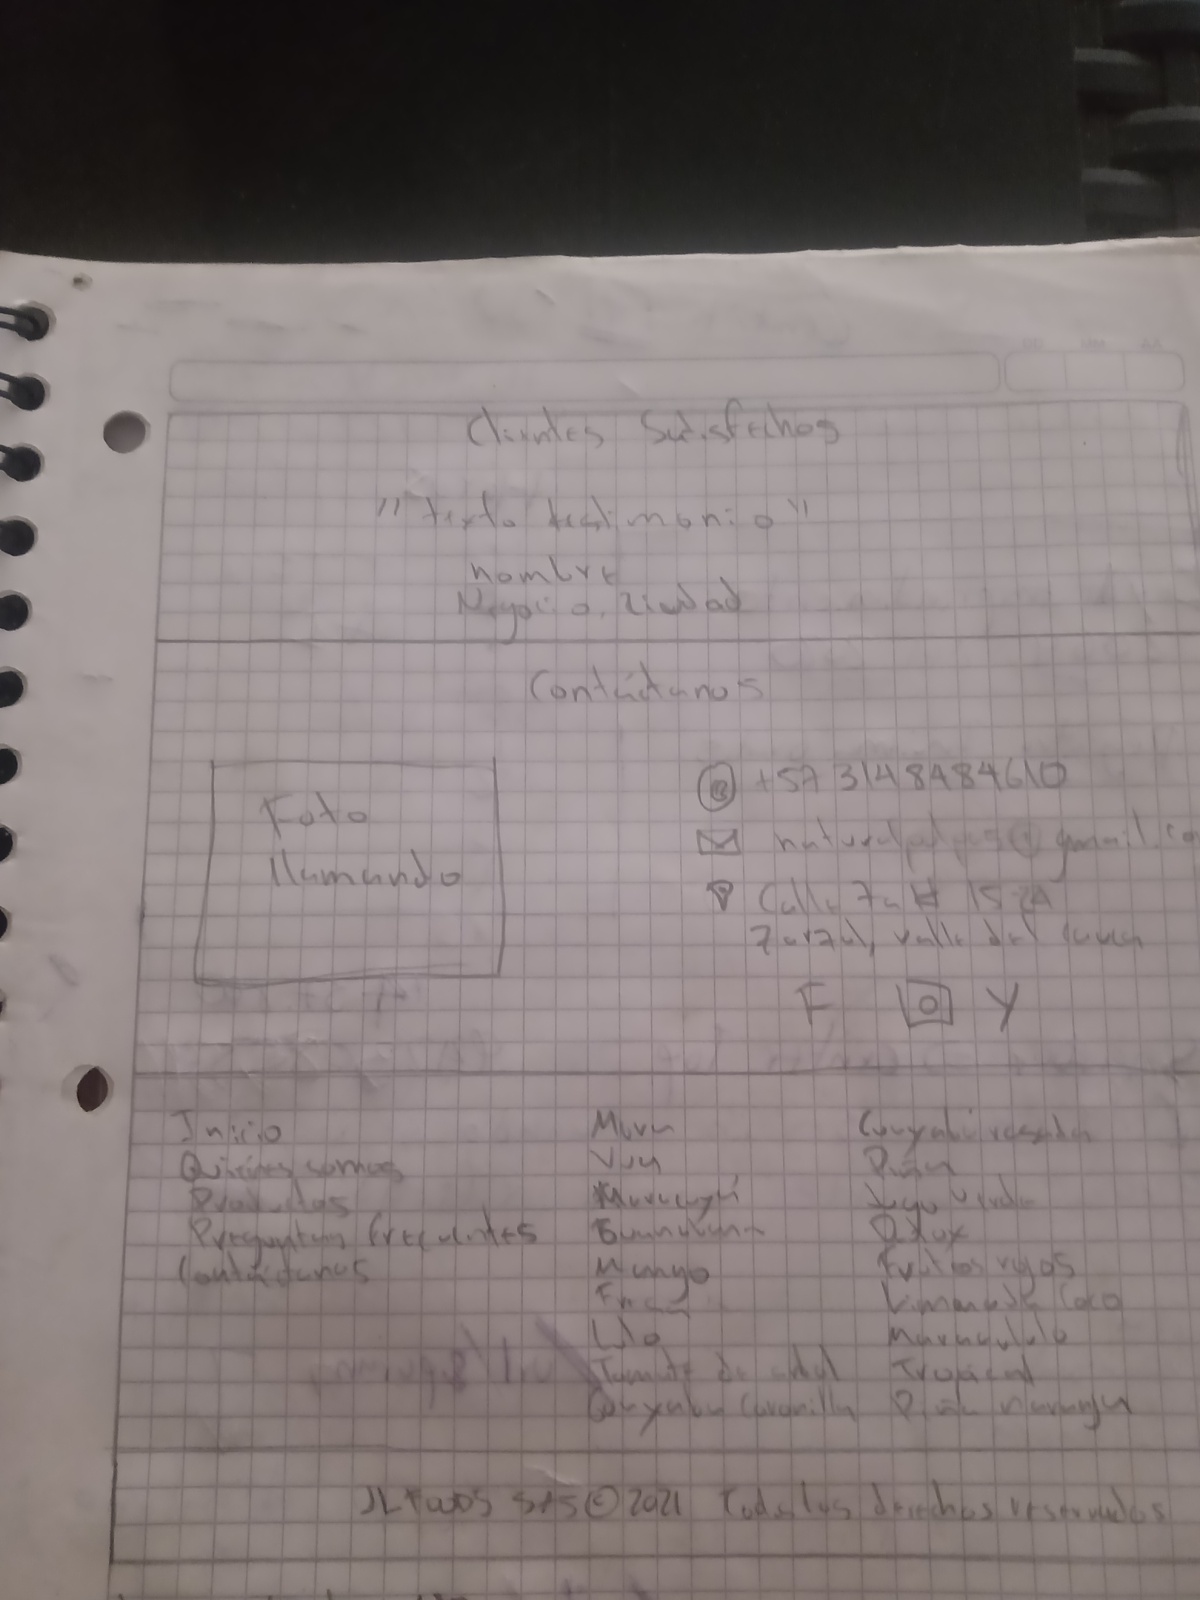 Clientes Satisfechos
"texto testimonio"
nombre
Negocio. Ciudad
Contáctanos
Foto
llamando
+57 3148484610
naturalpulpas@gmail.co
Calle 7a # 15-24
Zarzal, valle del cauca
F Y
Inicio
Quienes somos
Productos
Preguntan frecuentes
Contáctanos
Mora
Uva
Maracuyá
Guanabana
Mango
Fresa
Lulo
Tomate de arbol
Guayaba Coronilla
Guayaba rosada
Piña
Jugo verde
Detox
Frutos rojos
Limonada Coco
Maracululo
Tropical
Piña naranja
JL FOODS SAS © 2021 Todos los derechos reservados